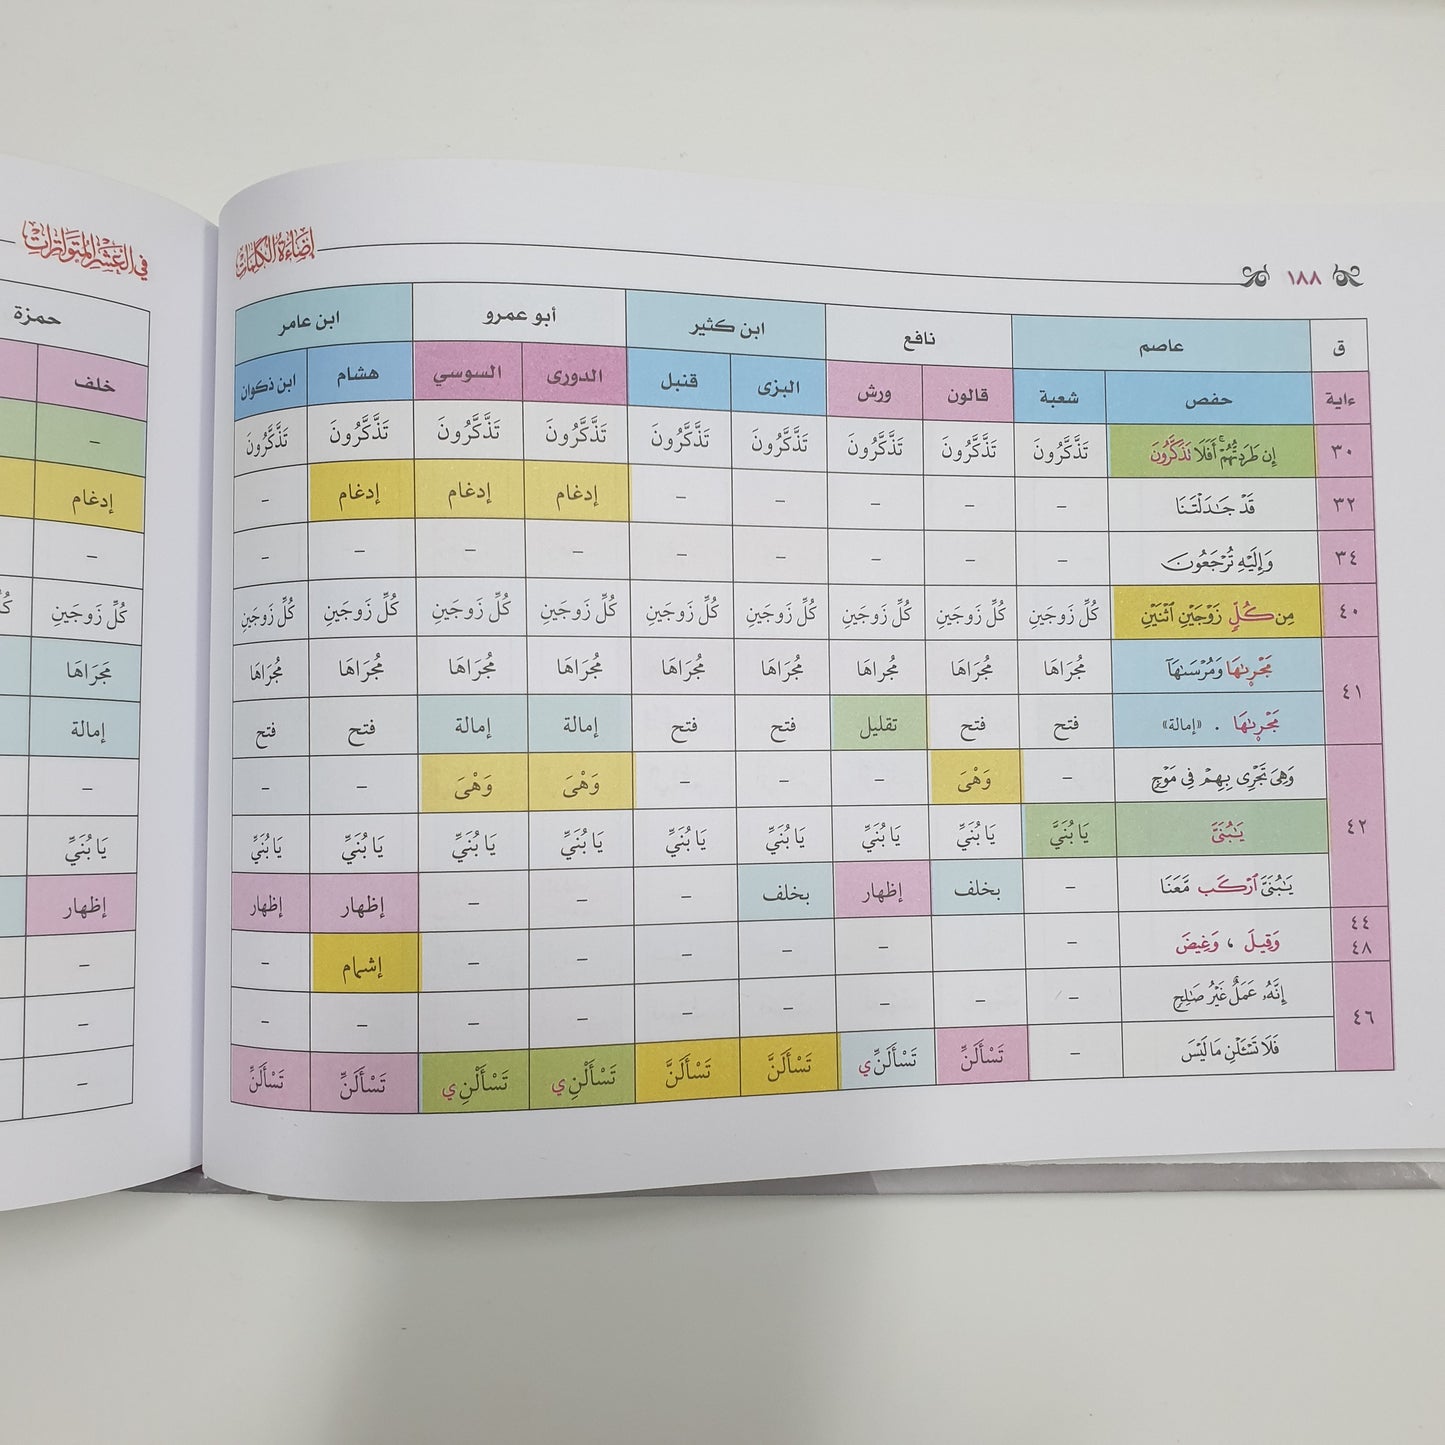 إضاءة الكلمات
١٨٨
ق | عاصم | نافع | ابن كثير | أبو عمرو | ابن عامر
ءاية | حفص | شعبة | قالون | ورش | البزى | قنبل | الدورى | السوسي | هشام | ابن ذكوان
٣٠ | إِن طَرَدتُّهُمْۚ أَفَلَا تَذَكَّرُونَ | تَذَّكَّرُونَ | تَذَّكَّرُونَ | تَذَّكَّرُونَ | تَذَّكَّرُونَ | تَذَّكَّرُونَ | تَذَّكَّرُونَ | تَذَّكَّرُونَ | تَذَّكَّرُونَ | تَذَّكَّرُونَ
٣٢ | قَدْ جَـٰدَلْتَنَا | – | – | – | – | – | إدغام | إدغام | إدغام | –
٣٤ | وَإِلَيْهِ تُرْجَعُونَ | – | – | – | – | – | – | – | – | –
٤٠ | مِن كُلٍّ زَوْجَيْنِ ٱثْنَيْنِ | كُلِّ زَوجَينِ | كُلِّ زَوجَينِ | كُلِّ زَوجَينِ | كُلِّ زَوجَينِ | كُلِّ زَوجَينِ | كُلِّ زَوجَينِ | كُلِّ زَوجَينِ | كُلِّ زَوجَينِ | كُلِّ زَوجَينِ
٤١ | مَجْر۪ىٰهَا وَمُرْسَىٰهَآ | مُجُرَاهَا | مُجُرَاهَا | مُجُراهَا | مُجُرَاهَا | مُجُرَاهَا | مُجُرَاهَا | مُجُرَاهَا | مُجُرَاهَا | مُجُرَاهَا
مَجْر۪ىٰهَا . «إمالة» | فتح | فتح | تقليل | فتح | فتح | إمالة | إمالة | فتح | فتح
٤٢ | وَهِىَ تَجْرِى بِهِمْ فِى مَوْجٍ | – | وَهْىَ | – | – | – | وَهْىَ | وَهْىَ | – | –
يَـٰبُنَىَّ | يَا بُنَيَّ | يَا بُنَيِّ | يَا بُنَيِّ | يَا بُنَيِّ | يَا بُنَيِّ | يَا بُنَيِّ | يَا بُنَيِّ | يَا بُنَيِّ | يَا بُنَيِّ
يَـٰبُنَىَّ ٱرْكَب مَّعَنَا | – | بخلف | إظهار | بخلف | – | – | – | إظهار | إظهار
٤٤
٤٨ | وَقِيلَ ، وَغِيضَ | – | – | – | – | – | – | إشمام | –
٤٦ | إِنَّهُۥ عَمَلٌ غَيْرُ صَـٰلِحٍ | – | – | – | – | – | – | – | – | –
فَلَا تَسْـَٔلْنِ مَا لَيْسَ | – | تَسْأَلَنِّ | تَسْأَلَنِّي | تَسْأَلَنَّ | تَسْأَلَنَّ | تَسْأَلْنِي | تَسْأَلْنِي | تَسْأَلَنِّ | تَسْأَلَنِّ
في العشر المتواترات
حمزة
خلف
–
إدغام
–
كُلِّ زَوجَينِ
مَجَرَاهَا
إمالة
–
يَا بُنَيِّ
إظهار
–
–
–